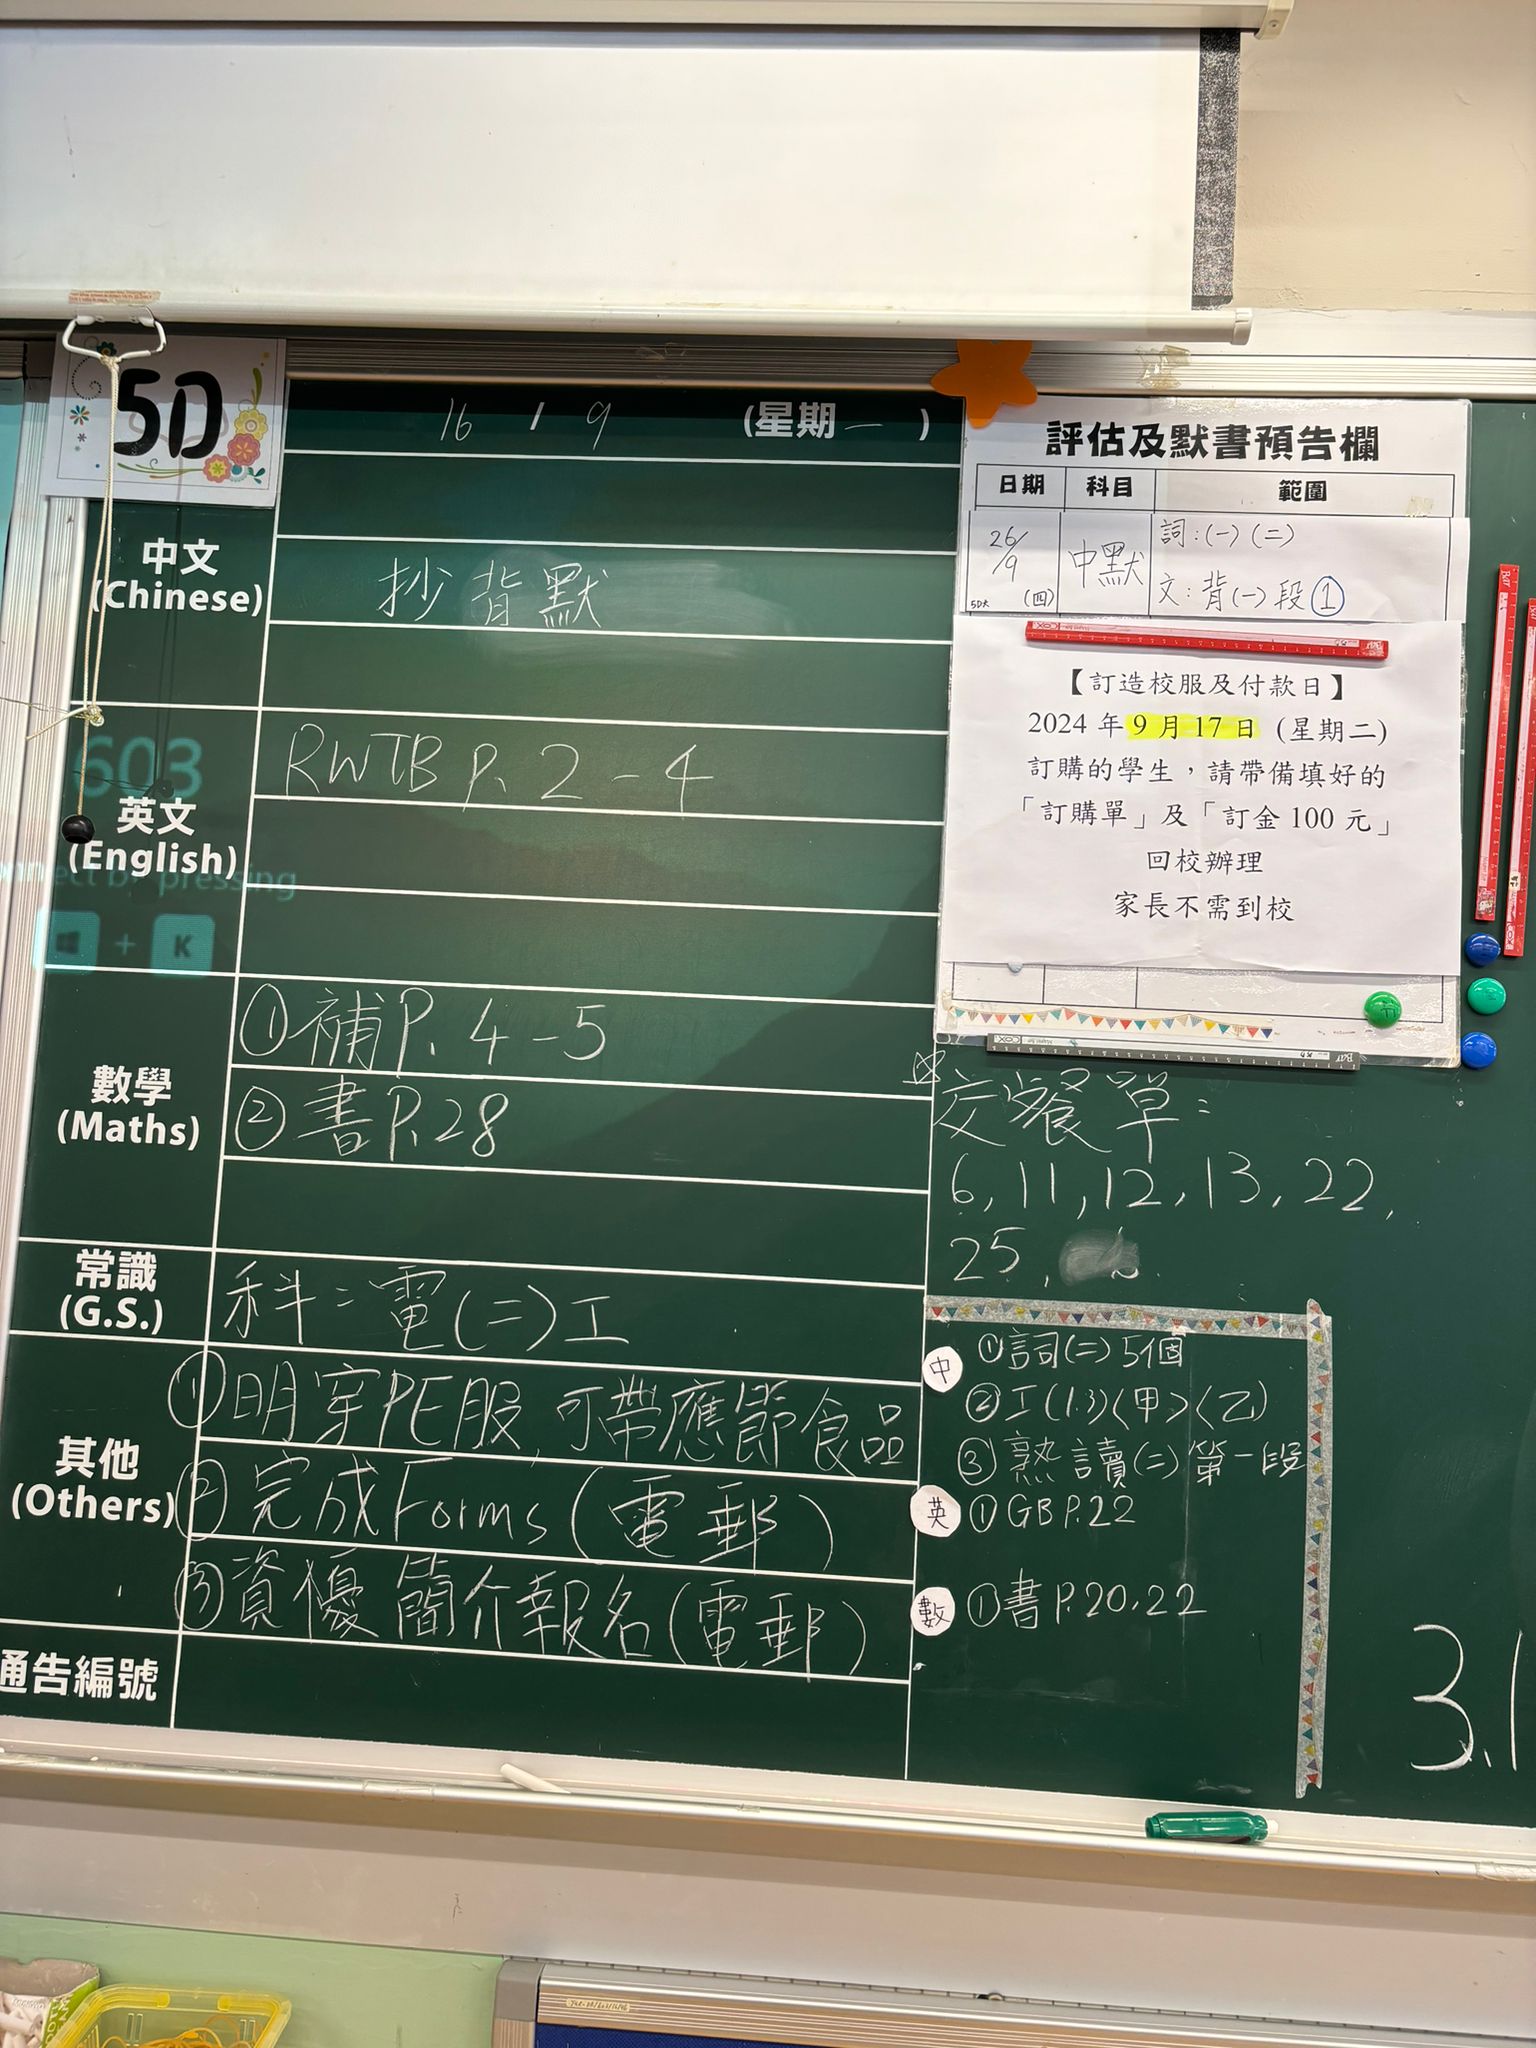 5D
16 / 9 (星期一)
中文
(Chinese)
抄背默
英文
(English)
RWTB P. 2-4
603
pressing
+ K
數學
(Maths)
①補P. 4-5
②書P.28
常識
(G.S.)
科:電(二)工
其他
(Others)
①明穿PE服,可帶應節食品
②完成Forms(電郵)
③資優簡介報名(電郵)
通告編號
評估及默書預告欄
日期 科目 範圍
26/9 (四) 中默 詞:(一)(二)
文:背(一)段①
【訂造校服及付款日】
2024 年 9 月 17 日 (星期二)
訂購的學生,請帶備填好的
「訂購單」及「訂金 100 元」
回校辦理
家長不需到校
交餐單:
6, 11, 12, 13, 22,
25,
中 ①詞(二)5個
②工(1.3)〈甲〉〈乙〉
③熟讀(二)第一段
英 ①GB P.22
數 ①書P.20,22
3.1